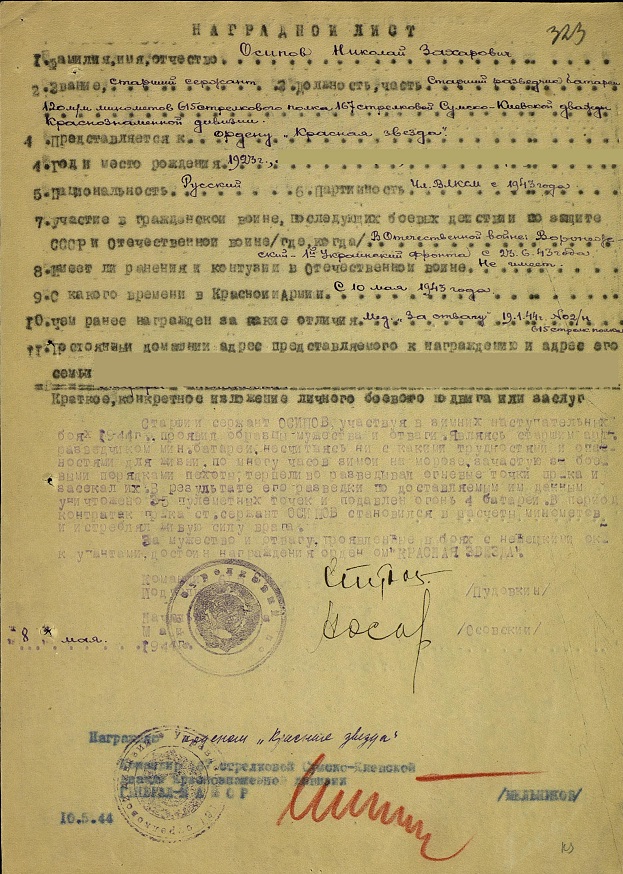 НАГРАДНОЙ ЛИСТ
323
1. Фамилия, имя, отчество Осипов Николай Захарович
2. Звание, старший сержант 3. Должность, часть Старший разведчик батареи
120 м/м минометов 615 стрелкового полка 167 стрелковой Сумско-Киевской дважды
Краснознаменной дивизии.
Представляется к ордену „Красная звезда".
4. Год и место рождения 1923 г.,
5. Национальность Русский 6. Партийность Чл. ВЛКСМ с 1943 года
7. участие в гражданской войне, последующих боевых действий по защите
СССР и Отечественной войне /где, когда/ В Отечественной войне: Воронеж-
ский - 1й Украинский фронта с 23.6.43 года
8. Имеет ли ранения и контузии в Отечественной войне. Не имеет.
9. С какого времени в Красной Армии. С 10 мая 1943 года.
10. чем ранее награжден за какие отличия. Мед. „За отвагу" 19.1.44г. №02/н
615 стрел. полка
11. Постоянный домашний адрес представляемого к награждению и адрес его
семьи
Краткое, конкретное изложение личного боевого подвига или заслуг
Старший сержант ОСИПОВ, участвуя в зимних наступательных
боях 1944г. проявил образцы мужества и отваги. Являясь старшим
разведчиком мин. батареи, несчитаясь ни с какими трудностями и опас-
ностями для жизни, по многу часов зимой на морозе, зачастую за бое-
выми порядками пехоты, терпеливо разведывал огневые точки врага и
засекал их. В результате его разведки по доставляемым им данным
уничтожено пулеметных точек и подавлен огонь 4 батарей. В период
контратак врага ст. сержант ОСИПОВ становился в расчеты минометов
и истреблял живую силу врага.
За мужество и отвагу, проявленные в боях с немецкими
достоин награждения орденом "КРАСНАЯ ЗВЕЗДА".
/Пудовкин/
/Осовский/
8 мая.
1944г.
Награжден орденом „Красная звезда"
Командир стрелковой Сумско-Киевской
дважды Краснознаменной дивизии
ГЕНЕРАЛ-МАЙОР /МЕЛЬНИКОВ/
10.5.44